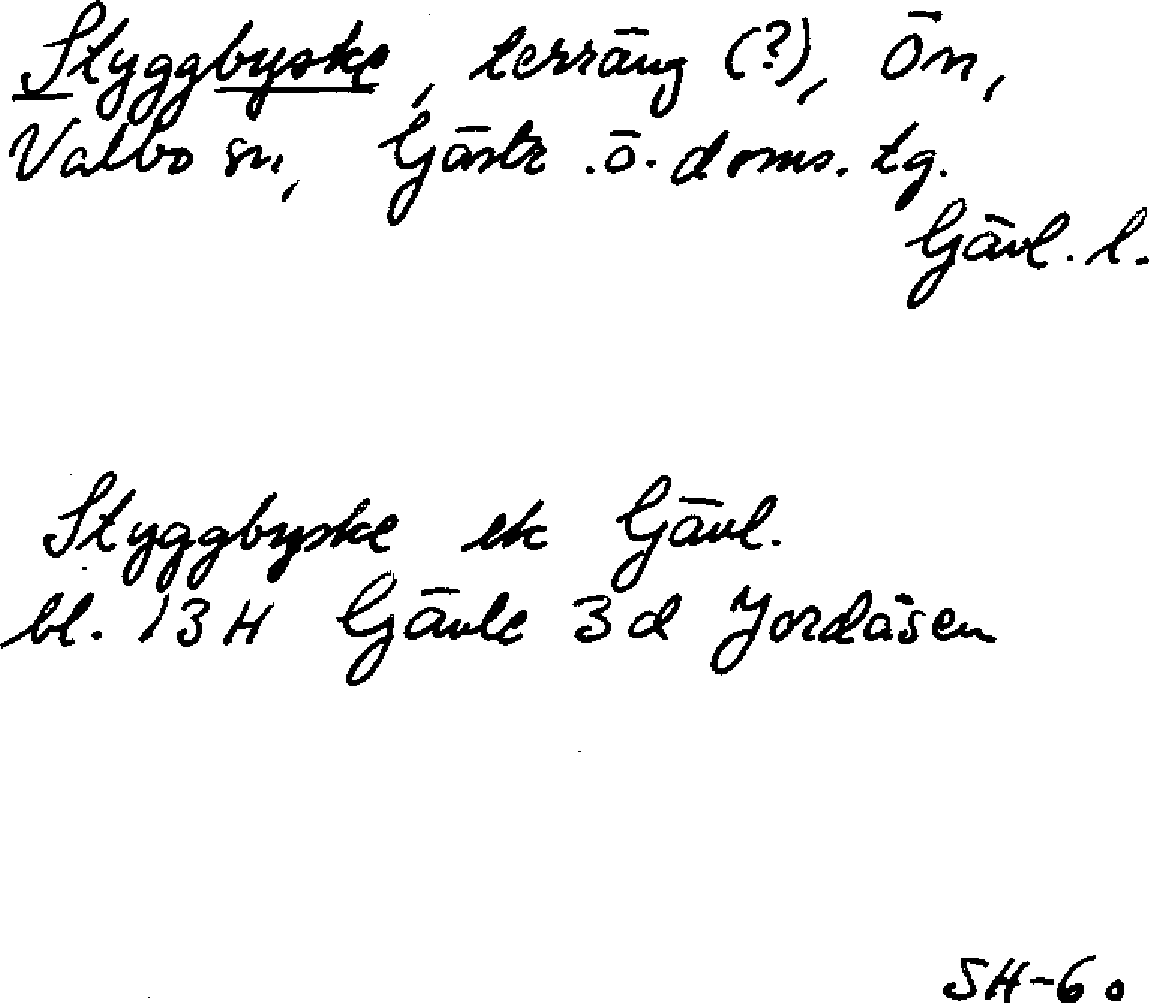 Styggbyske, terräng (?), Ön,
Valbo sn, Gästr. ö. doms. tg.
Gävl. l.
Styggbyske ek Gävl.
bl. 13H Gävle 3d Jordåsen
SH-60